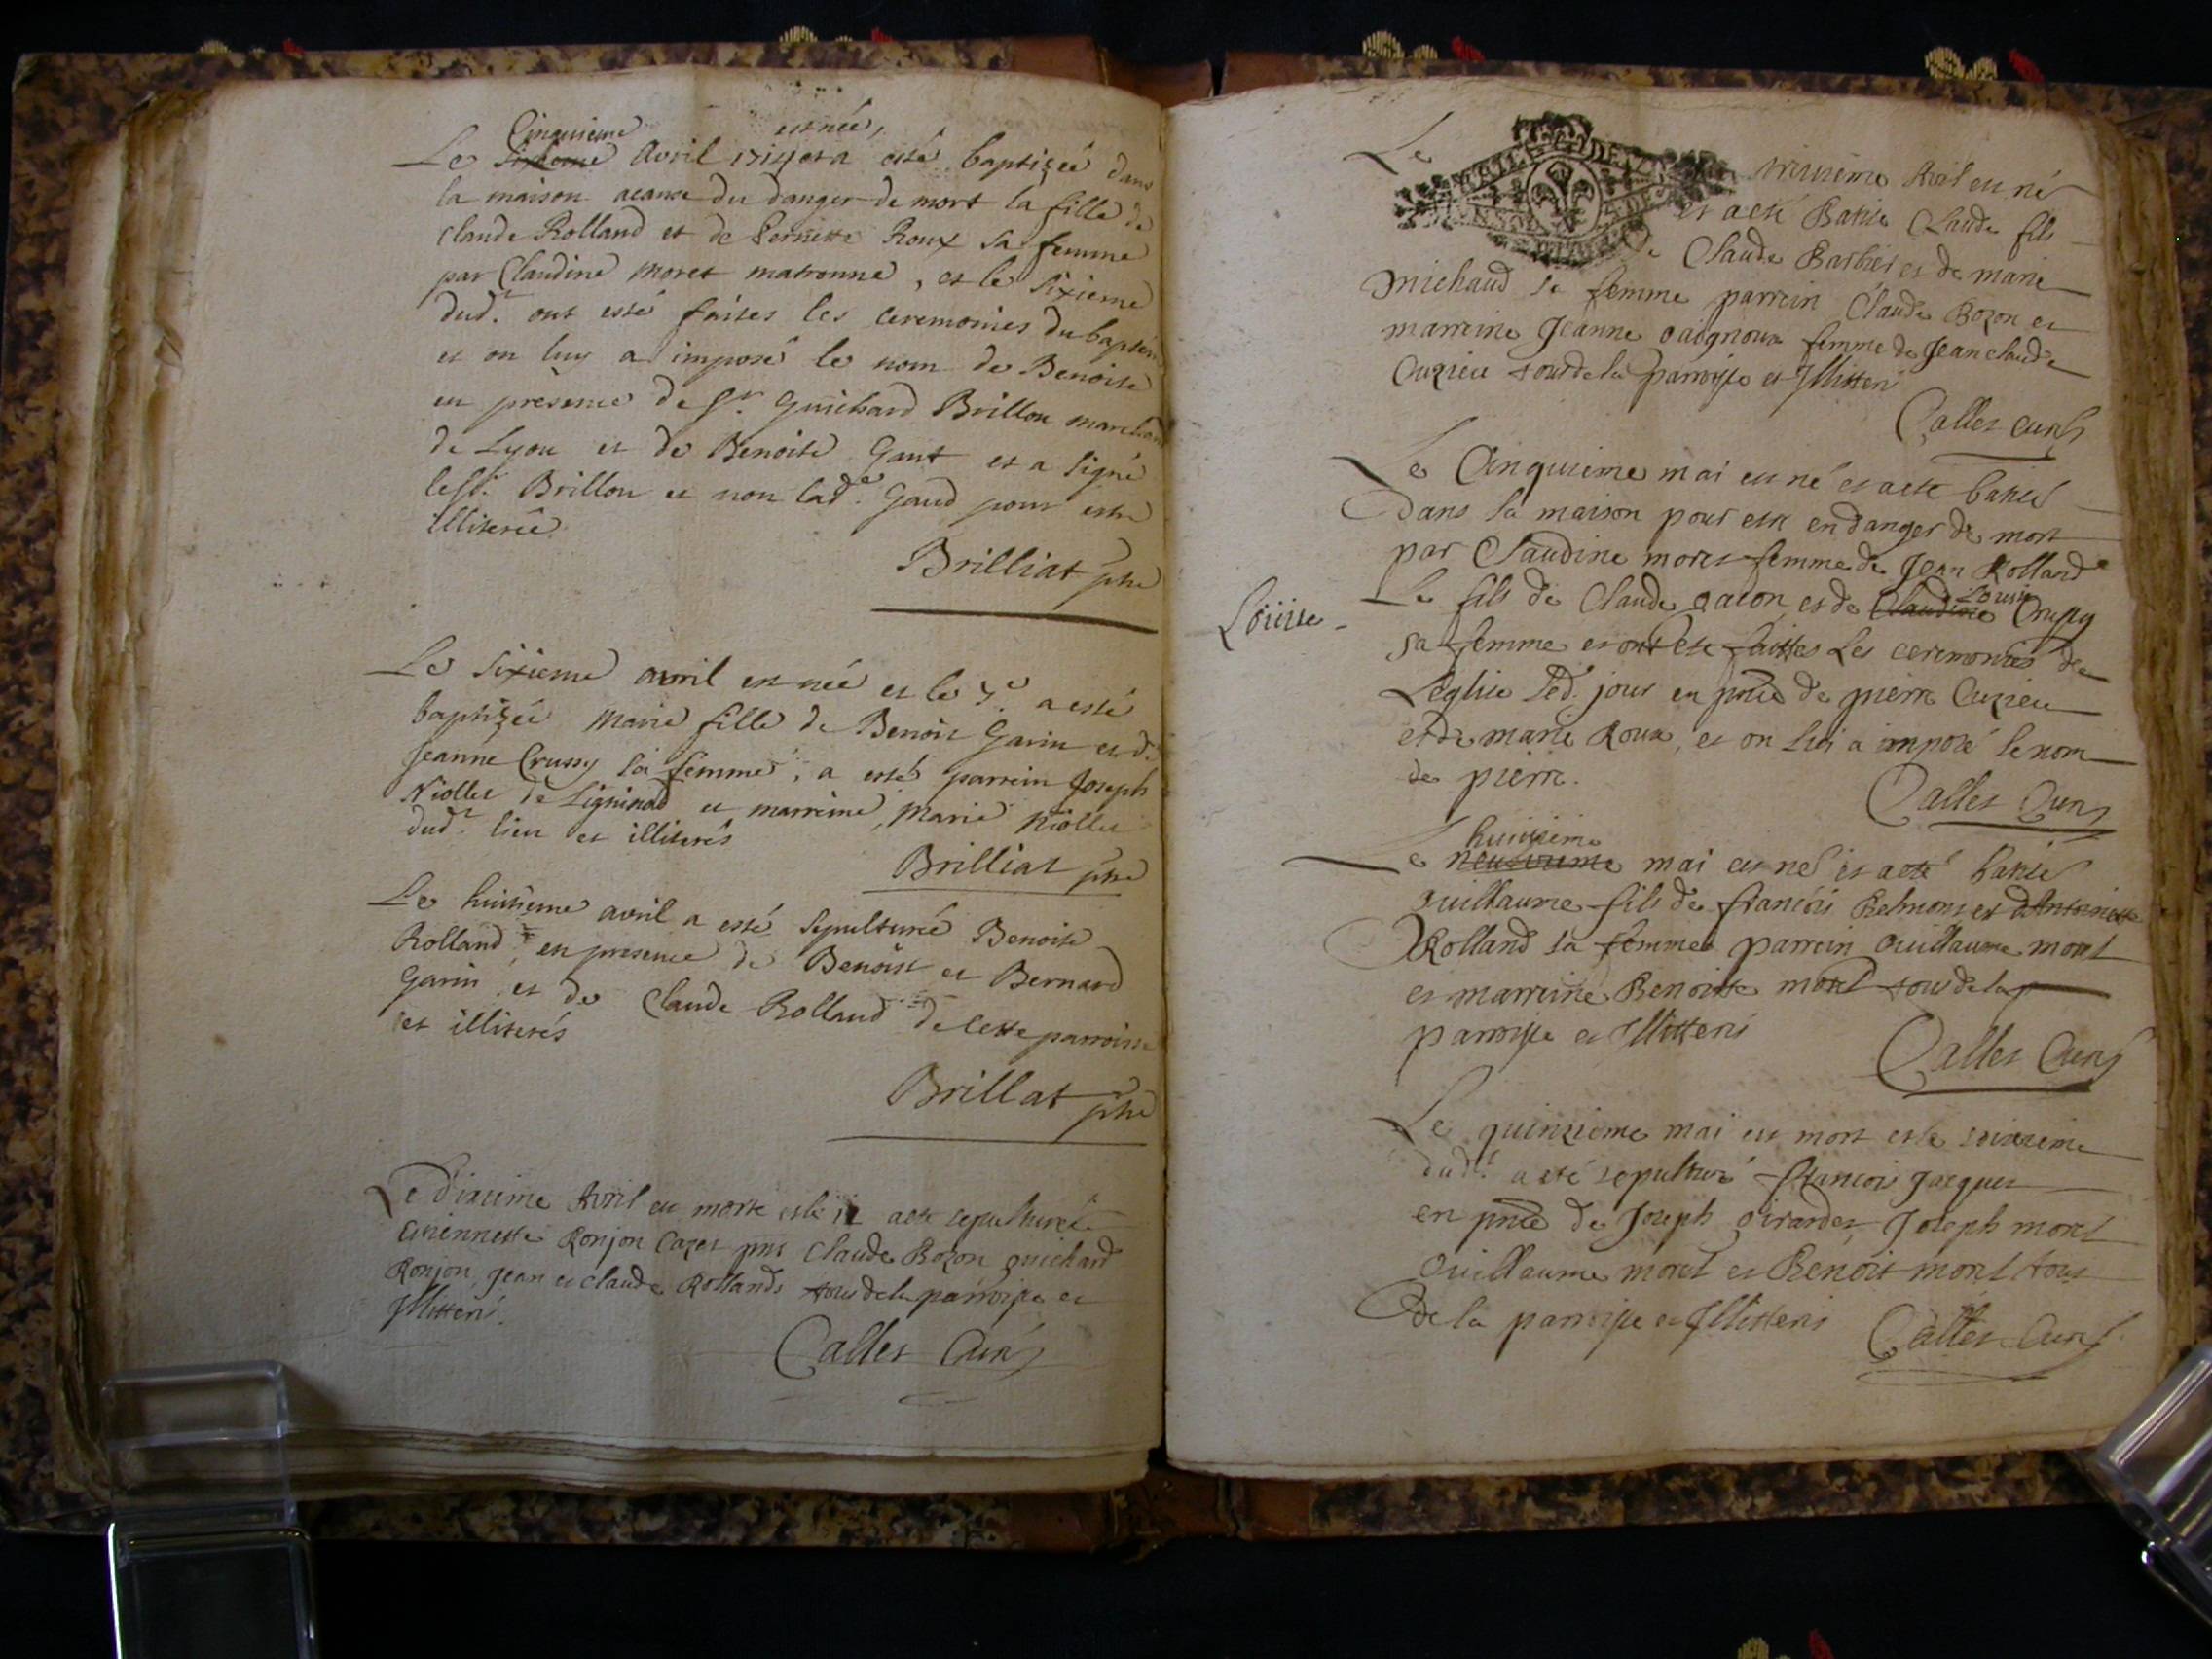 Cinquieme est née,
Le Sixieme Avril 1714 et a esté baptizée dans
la maison acause du danger de mort la fille de
Claude Rolland et de Pernette Roux sa femme
par Claudine Moret matronne, et le sixieme
dud.t ont esté faites les ceremonies du baptême
et on luy a imposé le nom de Benoite
en presence de Sr. Guichard Brillon marchand
de Lyon et de Benoite Gant et a signé
led.sr Brillon et non lad.e Gaud pour estre
illiterée
Brilliat ptre
Le Sixieme avril est née et le 7.e a esté
baptizée Marie fille de Benoit Garin et de
Jeanne Crussy sa femme, a esté parrein Joseph
Niollet de et marreine, Marie Niollet
dud.t lieu et illiterés
Brilliat ptre
Le huitieme avril a esté sepulturée Benoite
Rolland, en presence de Benoist et Bernard
Garin, et de Claude Rolland de cette parroisse
et illiterés
Brillat ptre
Le dixieme Avril est morte et le 11 a eté sepulturée
Etiennette Ronjon pnts Claude Bozon guichard
Ronjon, Jean et Claude Rollands tous de la parroisse et
Illitterés.
Calles Curé
Le Avril est né
et a eté Batisé Claude fils
de Claude Barbier et de marie
michaud sa femme parrein Claude Bozon et
marreine Jeanne femme de Jean claude
Cuzieu tous de la parroisse et Illitterés
Calles curé
Le Cinquieme mai est né et a eté batisé
Dans la maison pour estre en danger de mort
par Claudine moret femme de Jean Rolland
Le fils de Claude et de Claudine Louise Crussy
Louise
sa femme et ont ete faittes Les ceremonies de
L'eglise led. jour en pnce de pierre Cuzieu
et de marie Roux, et on lui a imposé le nom
de pierre.
Calles Curé
huitieme
Le neuvieme mai est né et a eté batisé
Guillaume fils de francois Belmont et d'Antoinette
Rolland sa femme parrein Guillaume morel
et marreine Benoitte morel tous de la
parroisse et Illitterés
Calles Curé
Le quinzieme mai est mort et le seixieme
dud.t a eté sepulturé francois Jacques
en pnce de Joseph girardet, Joseph morel
Guillaume morel et Benoit morel tous
de la parroisse et Illitterés
Calles Curé